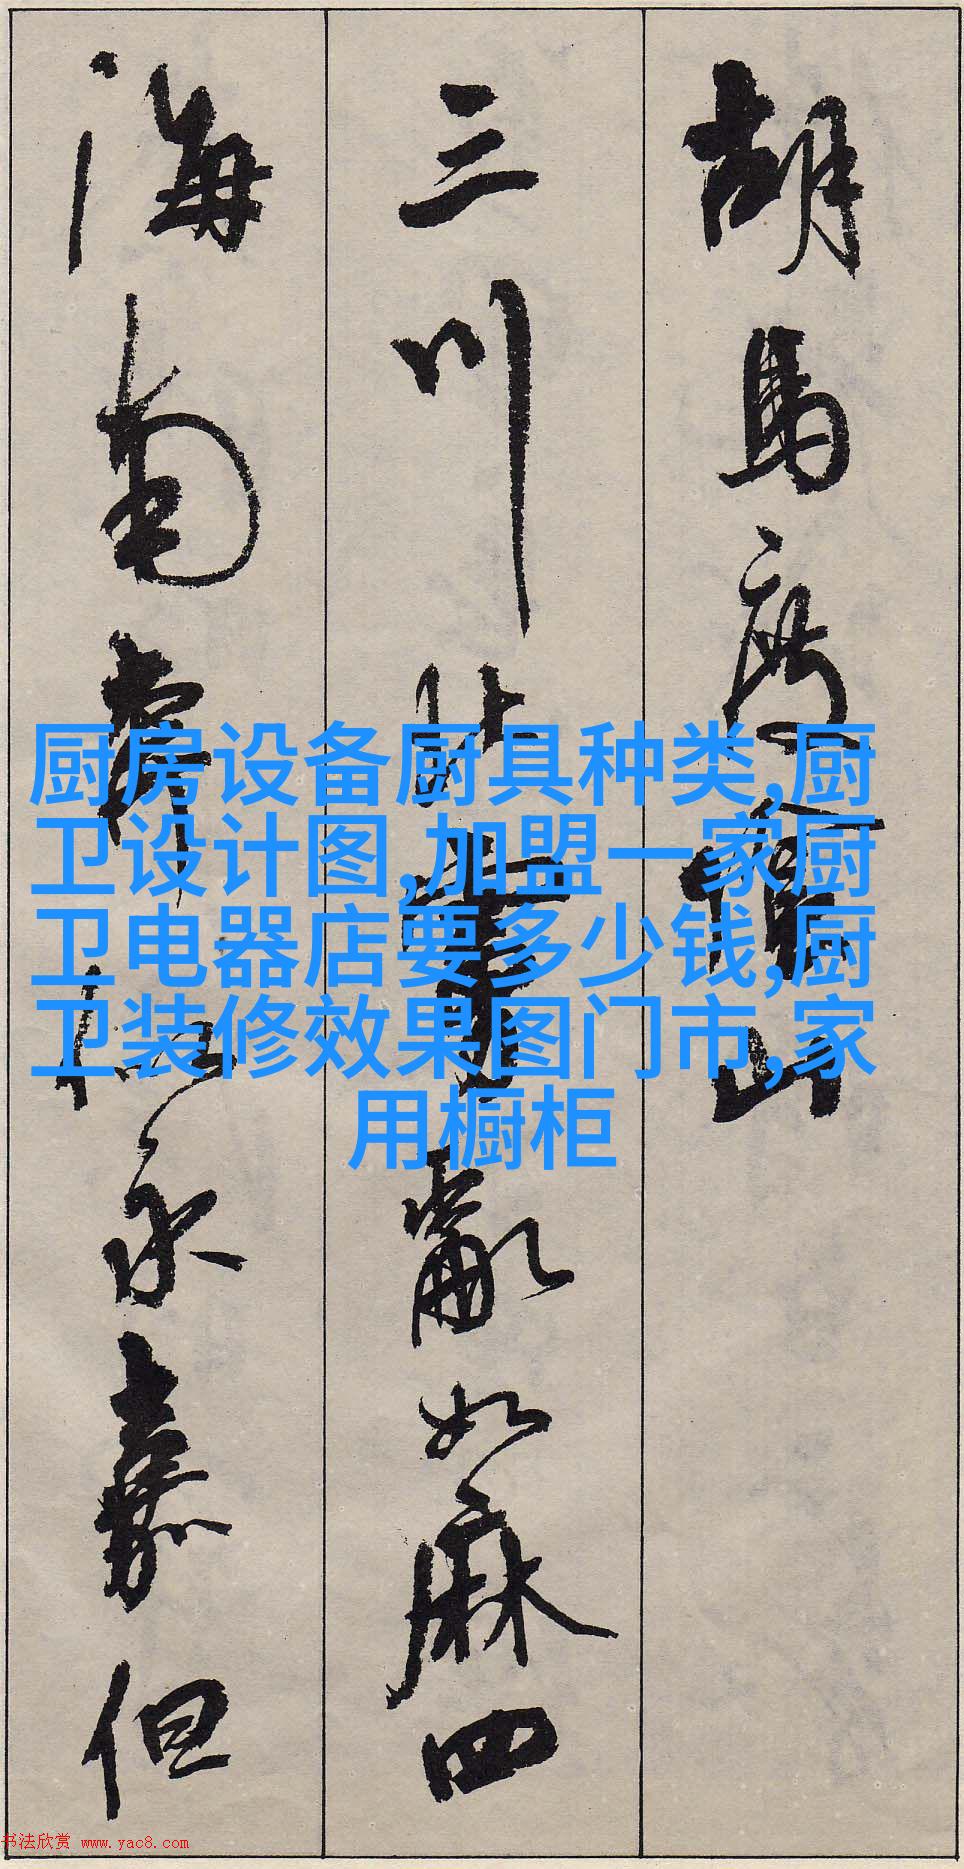 胡馬度陰山
三川北虜亂如麻四
海南奔似永嘉但
厨房设备厨具种类,厨
卫设计图,加盟一家厨
卫电器店要多少钱,厨
卫装修效果图门市,家
用橱柜
书法欣赏 www.yac8.com